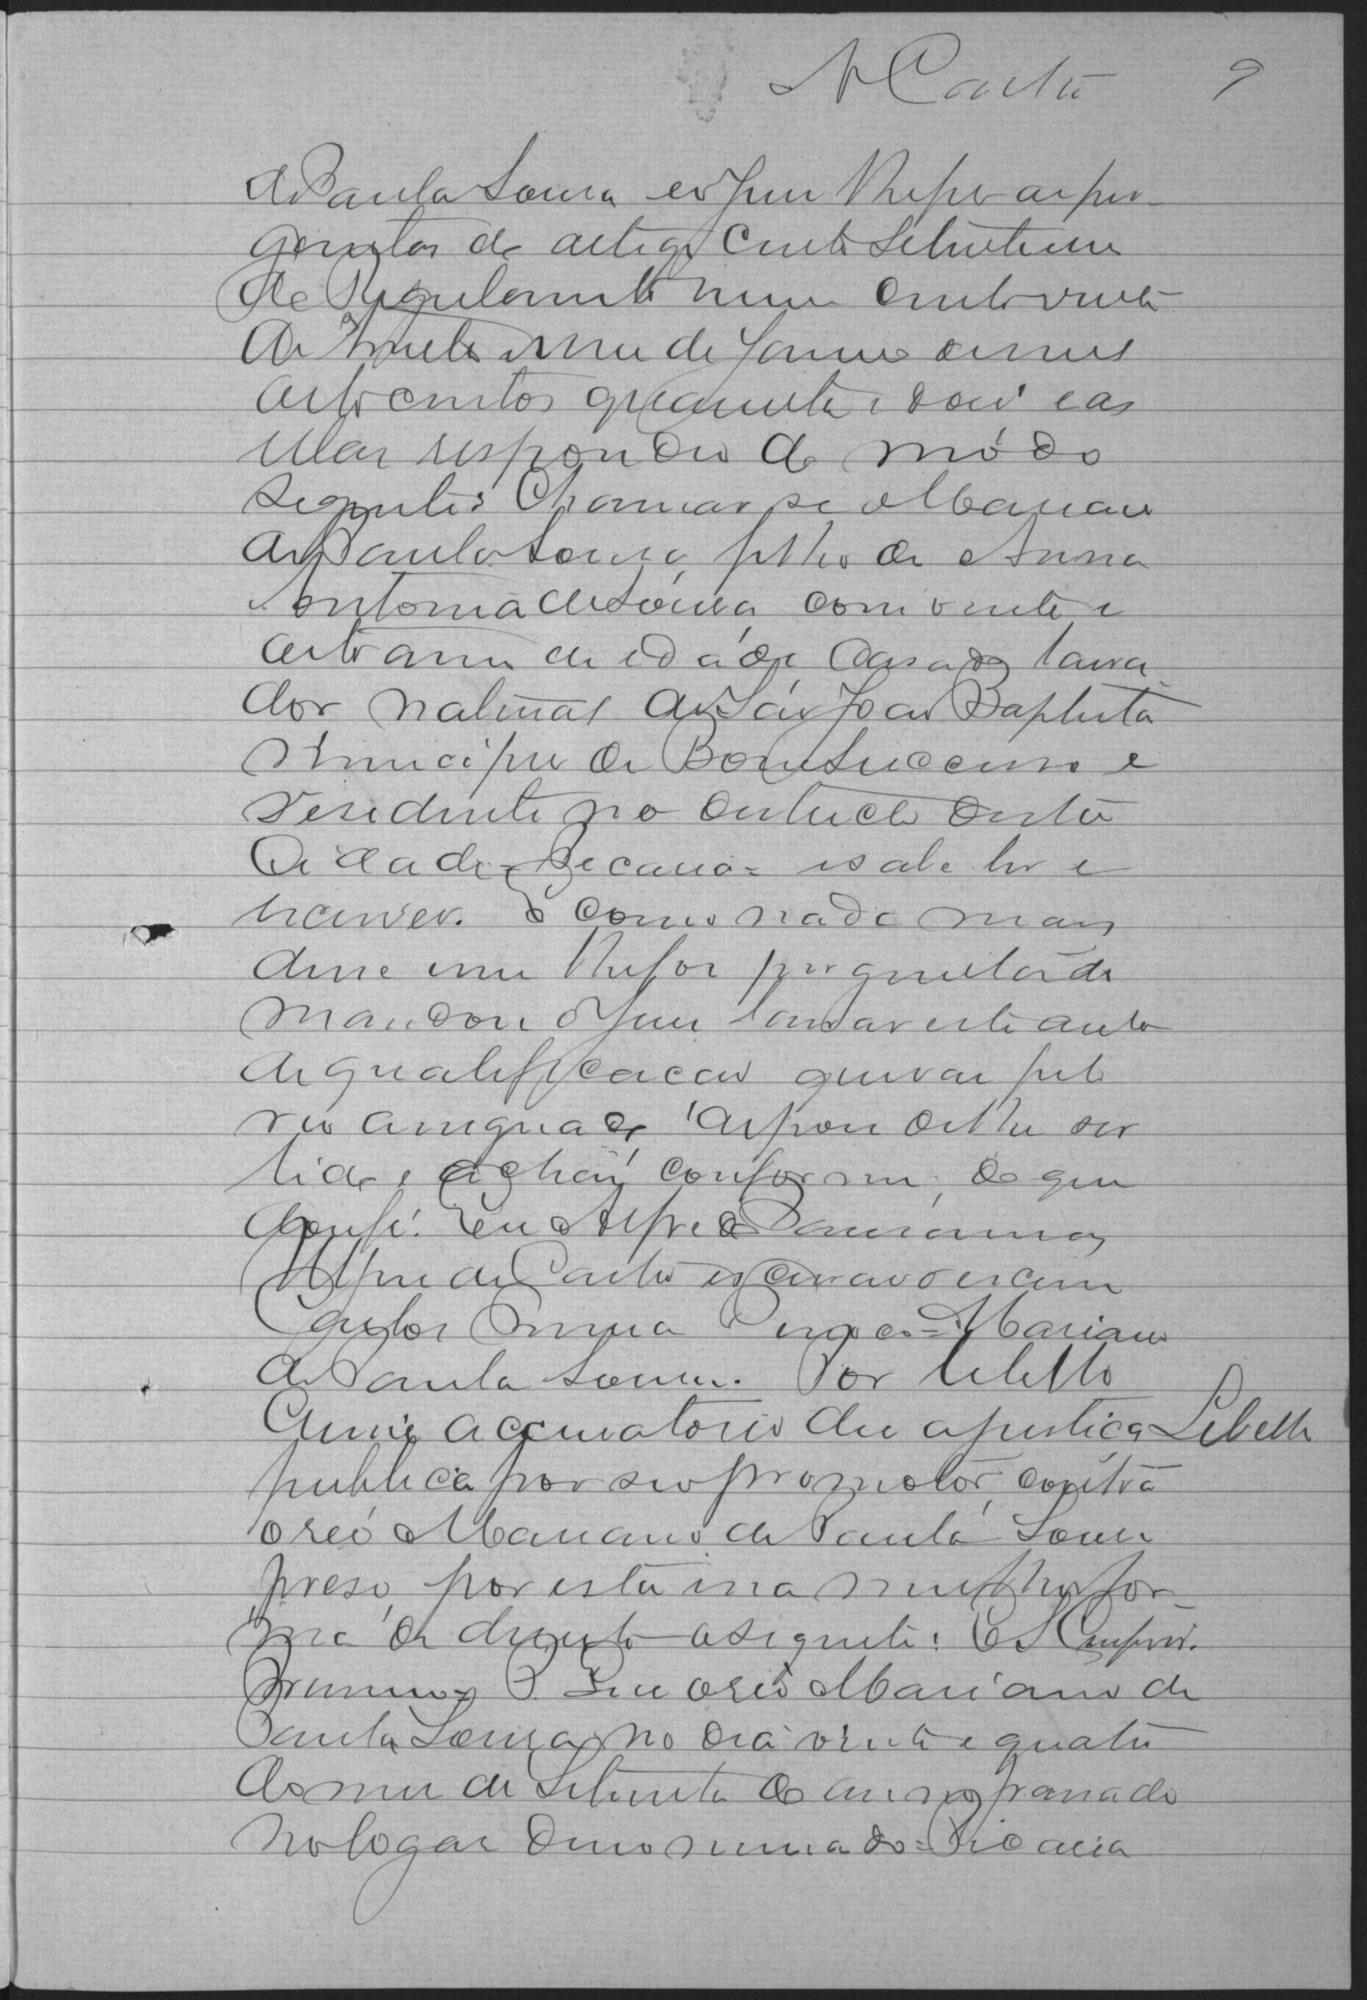 A Castro 9
de Paula Souza e o Juiz lhe fez as per-
guntas do artigo cento setenta e um
do Regulamento num cento vinte
de trinta e um de Janeiro de mil
oito centos quarenta e dous e as
quaes respondeu do módo
seguinte: Chamar se Mariano
de Paula Souza, filho de Anna
Antonia de Souza, com vinte e
oito annos de idáde, casado, lavra-
dor natural de São João Baptista
Municipio de Bom Successo e
residente no districto desta
Cidade = Pecaria = e sabe ler e
escrever. E como nada mais
disse e nem lhe foi perguntado
mandou o Juiz lavrar este auto
de qualificacão que vai pelo
réo assignado, depois de lhe ser
lido, e achar conforme; do que
dou fé. Eu Alfredo
Alfredo Castro escrivão o escrevi
Carlos Mariano
de Paula Souza. Por libello
Crime accusatorio diz a justiça Libello
publica por seo promotor, contrá
o reó Mariano de Paulá Souza
preso, por esta e na melhor for-
ma de direito o seguinte: E S Cumprir.
Primeiro P. Que o reó Mariano de
Paula Souza, no dia vinte e quatro
do mez de Setembro do anno passado
no logar denominado = Picaria